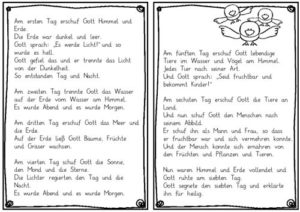 Am ersten Tag erschuf Gott Himmel und
Erde.
Die Erde war dunkel und leer.
Gott sprach: „Es werde Licht!“ und so
wurde es hell.
Gott gefiel das und er trennte das Licht
von der Dunkelheit.
So entstanden Tag und Nacht.
Am zweiten Tag trennte Gott das Wasser
auf der Erde vom Wasser am Himmel.
Es wurde Abend und es wurde Morgen.
Am dritten Tag erschuf Gott das Meer und
die Erde.
Auf der Erde ließ Gott Bäume, Früchte
und Gräser wachsen.
Am vierten Tag schuf Gott die Sonne,
den Mond und die Sterne.
Die Lichter regierten den Tag und die
Nacht.
Es wurde Abend und es wurde Morgen.
Am fünften Tag erschuf Gott lebendige
Tiere im Wasser und Vögel am Himmel.
Jedes Tier nach seiner Art.
Und Gott sprach: „Seid fruchtbar und
bekommt Kinder!“
Am sechsten Tag erschuf Gott die Tiere an
Land.
Und nun schuf Gott den Menschen nach
seinem Abbild.
Er schuf ihn als Mann und Frau, so dass
er fruchtbar war und sich vermehren konnte.
Und der Mensch konnte sich ernähren von
den Früchten und Pflanzen und Tieren.
Nun waren Himmel und Erde vollendet und
Gott ruhte am siebten Tag.
Gott segnete den siebten Tag und erklärte
ihn für heilig.